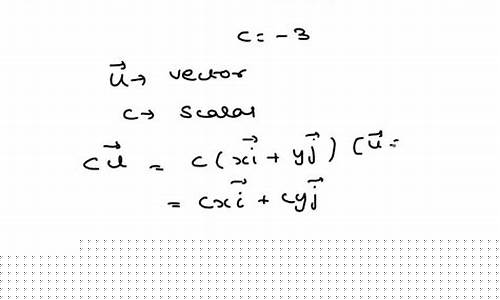 c = -3
u⃗ → vector
c → scalar
cu⃗ = c(xi⃗ + yj⃗) [u⃗ =
= cxi⃗ + cyj⃗